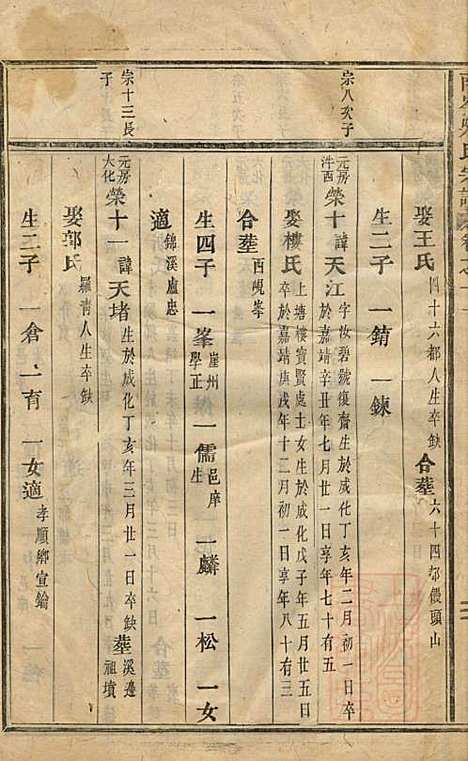 娶王氏 四十六都人生卒缺 合塟 六十四都饅頭山
生二子 一錆 一鍊
宗八次子
元房泮西 榮十 諱天江 字汝碧號復齋生於成化丁亥年二月初一日卒
於嘉靖辛丑年七月廿一日享年七十有五
娶樓氏 上塘樓賓賢處士女生於成化戊子年五月廿五日
卒於嘉靖庚戌年十二月初一日享年八十有三
合塟 西峴峯
生四子 一峯 崖州學正 一儒 邑庠生 一麟 一松 一女
適 錦溪盧忠
宗十三長子
元房大化 榮十一 諱天堵 生於成化丁亥年三月廿一日卒缺 塟 溪邊祖墳
娶郭氏 羅青人生卒缺
生二子 一倉 一育 一女適 孝順鄉宣鑰